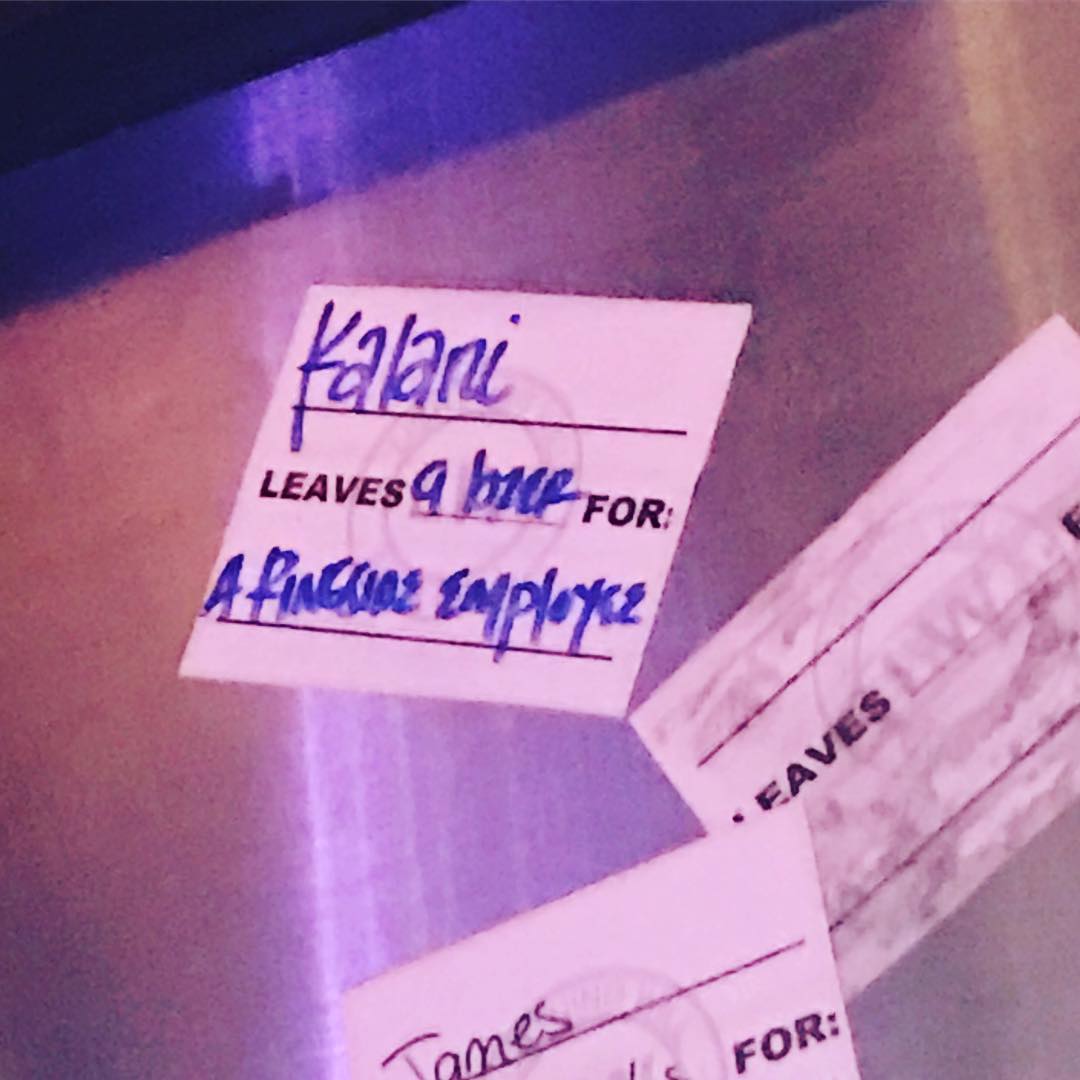 Kalani
LEAVES a beer FOR:
A PINGUINE EMPLOYEE
LEAVES
James
FOR: